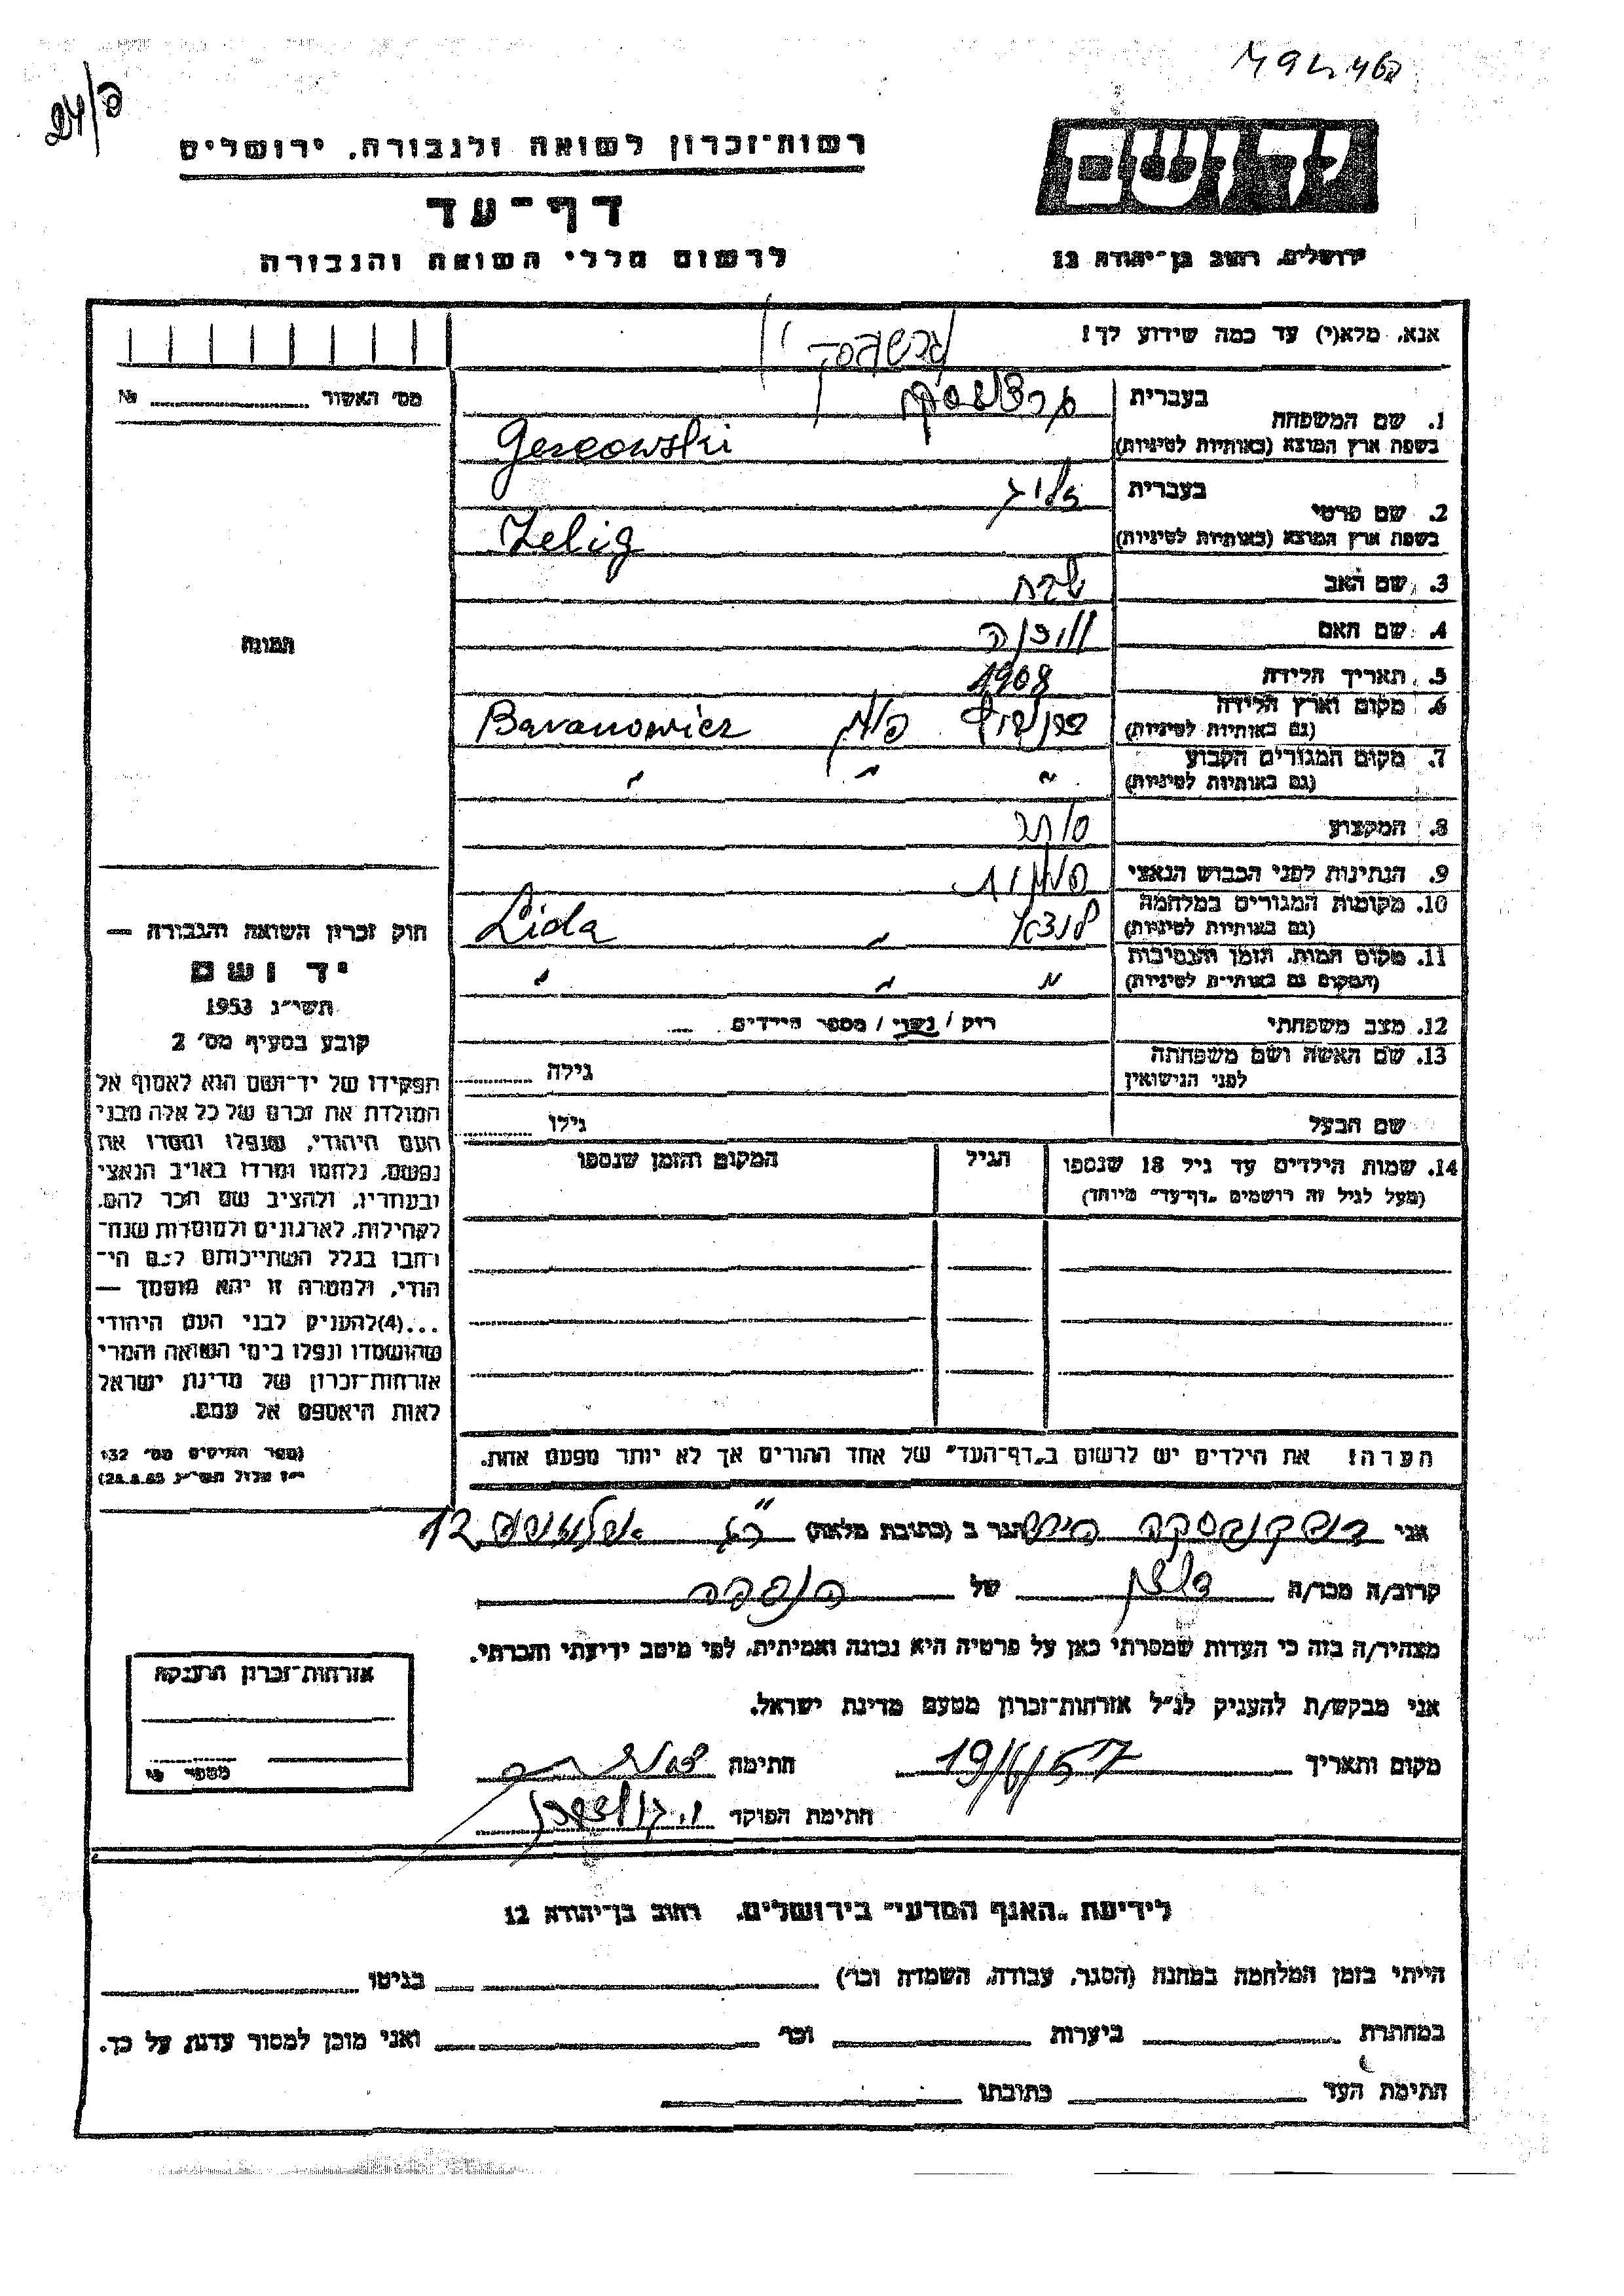 24/פ
רשות־זכרון לשואה ולגבורה, ירושלים
דף־עד
לרשום חללי השואה והגבורה
יד ושם
ירושלים, רחוב בן־יהודה 12
אנא, מלא(י) עד כמה שידוע לך!
מס' האשור №
1. שם המשפחה
בעברית
בשפת ארץ המוצא (באותיות לטיניות) Gercowski
2. שם פרטי
בעברית זליג
בשפת ארץ המוצא (באותיות לטיניות) Zelig
3. שם האב
4. שם האם
5. תאריך הלידה 1908
6. מקום וארץ הלידה
(גם באותיות לטיניות) פולין Baranowicz
7. מקום המגורים הקבוע
(גם באותיות לטיניות) " " "
8. המקצוע סוחר
9. הנתינות לפני הכבוש הנאצי פולנית
10. מקומות המגורים במלחמה
(גם באותיות לטיניות) " Lida
11. מקום המות, הזמן והנסיבות
(המקום גם באותיות לטיניות) " " "
12. מצב משפחתי רוק / נשוי / מספר הילדים
13. שם האשה ושם משפחתה
לפני הנישואין גילה
שם הבעל גילו
14. שמות הילדים עד גיל 18 שנספו
(מעל לגיל זה רושמים "דף־עד" מיוחד)
הגיל
המקום והזמן שנספו
הערה! את הילדים יש לרשום ב"דף־העד" של אחד ההורים אך לא יותר מפעם אחת.
תמונה
חוק זכרון השואה והגבורה —
יד ושם
תשי"ג 1953
קובע בסעיף מס' 2
תפקידו של יד־ושם הוא לאסוף אל
המולדת את זכרם של כל אלה מבני
העם היהודי, שנפלו ומסרו את
נפשם, נלחמו ומרדו באויב הנאצי
ובעוזריו, ולהציב שם וזכר להם,
לקהילות, לארגונים ולמוסדות שנח־
רבו בגלל השתייכותם לעם הי־
הודי, ולמטרה זו יהא מוסמך —
...(4) להעניק לבני העם היהודי
שהושמדו ונפלו בימי השואה והמרי
אזרחות־זכרון של מדינת ישראל
לאות היאספם אל עמם.
(ספר החוקים מס' 132
י"ז אלול תשי"ג 28.8.53)
אני הגר ב (כתובת מלאה) 12
קרוב/ה מכר/ה של
מצהיר/ה בזה כי העדות שמסרתי כאן על פרטיה היא נכונה ואמיתית, לפי מיטב ידיעתי והכרתי.
אני מבקש/ת להעניק לנ"ל אזרחות־זכרון מטעם מדינת ישראל.
מקום ותאריך 19/6/57 חתימה
חתימת הפוקד
אזרחות־זכרון הוענקה
מספר
לידיעת "האגף המדעי" בירושלים, רחוב בן־יהודה 12
הייתי בזמן המלחמה במחנה (הסגר, עבודה, השמדה וכו') בגיטו
במחתרת ביערות וכו' ואני מוכן למסור עדות על כך.
חתימת העד כתובתו